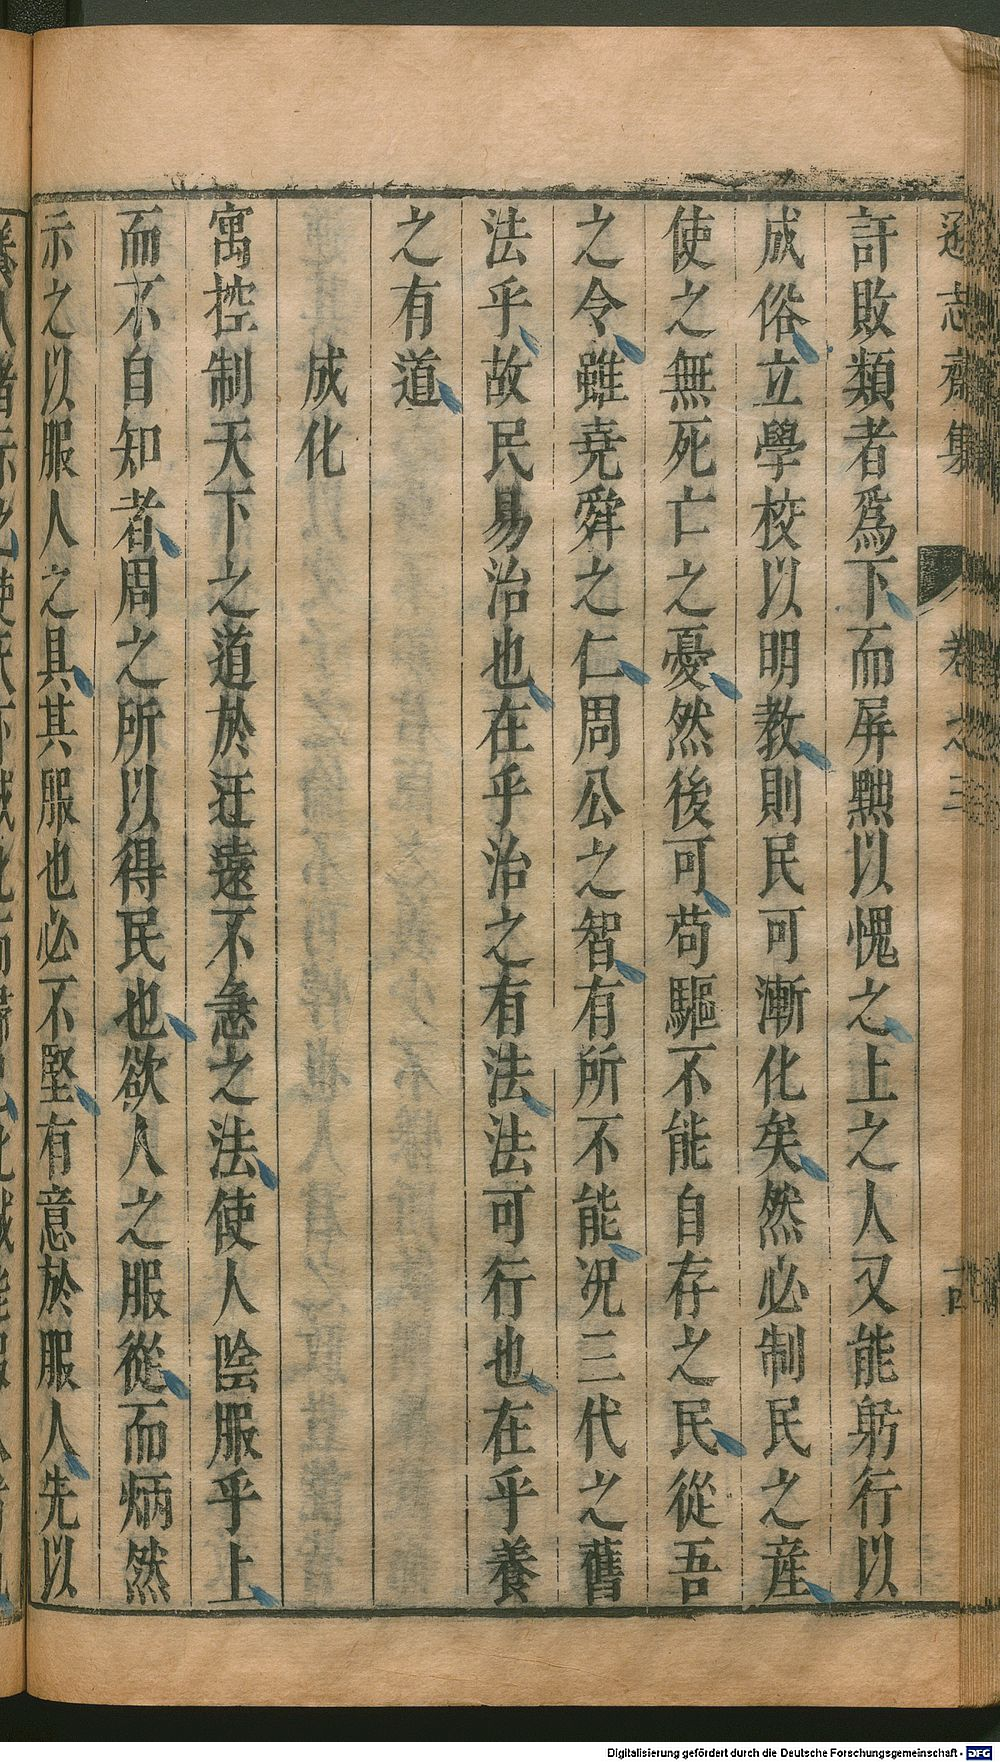 遜志齋集 卷之三 十四
訐敗類者爲下而屏黜以愧之上之人又能躬行以
成俗立學校以明教則民可漸化矣然必制民之産
使之無死亡之憂然後可苟驅不能自存之民從吾
之令雖堯舜之仁周公之智有所不能况三代之舊
法乎故民易治也在乎治之有法法可行也在乎養
之有道
成化
寓控制天下之道於迂遠不急之法使人陰服乎上
而不自知者周之所以得民也欲人之服從而炳然
示之以服人之具其服也必不堅有意於服人先以
Digitalisierung gefördert durch die Deutsche Forschungsgemeinschaft - DFG